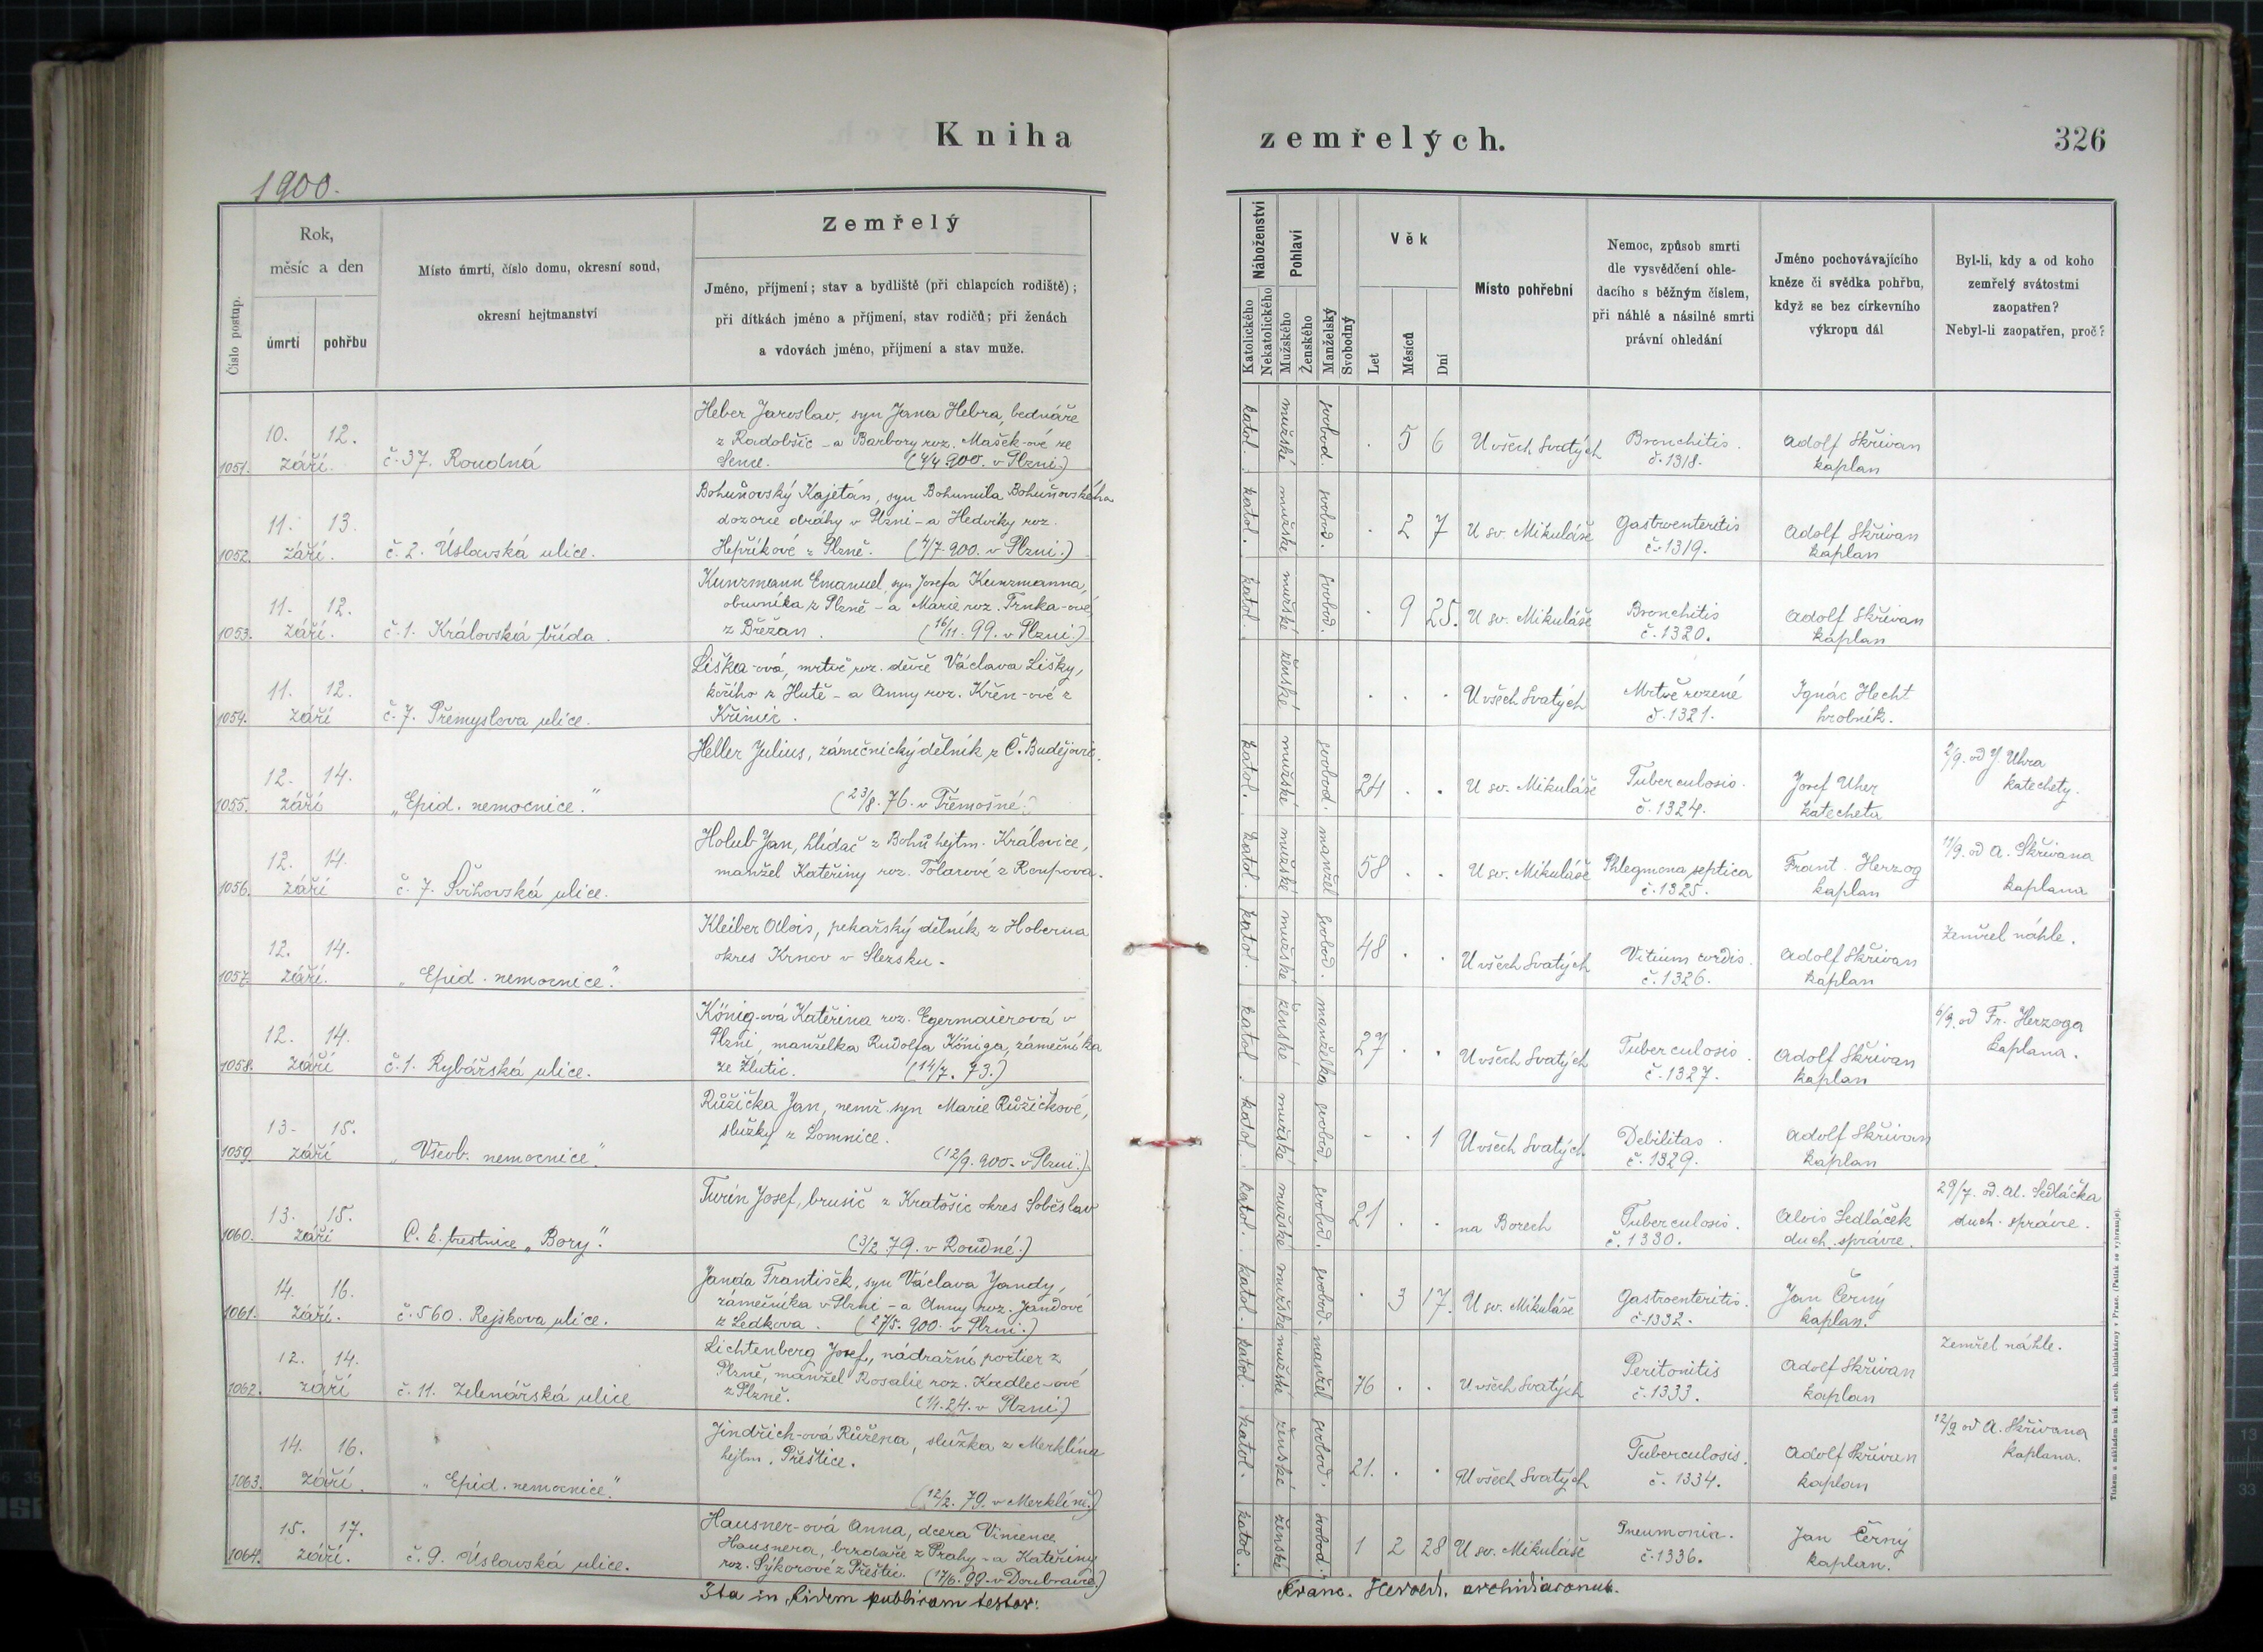 Kniha
zemřelých.
326
1900.
Číslo postup.
Rok,
měsíc a den
úmrtí
pohřbu
Místo úmrtí, číslo domu, okresní soud,
okresní hejtmanství
Zemřelý
Jméno, příjmení; stav a bydliště (při chlapcích rodiště);
při dítkách jméno a příjmení, stav rodičů; při ženách
a vdovách jméno, příjmení a stav muže.
Náboženství
Katolického
Nekatolického
Pohlaví
Mužského
Ženského
Manželský
Svobodný
Věk
Let
Měsíců
Dní
Místo pohřební
Nemoc, způsob smrti
dle vysvědčení ohle-
dacího s běžným číslem,
při náhlé a násilné smrti
právní ohledání
Jméno pochovávajícího
kněze či svědka pohřbu,
když se bez církevního
výkropu dál
Byl-li, kdy a od koho
zemřelý svátostmi
zaopatřen?
Nebyl-li zaopatřen, proč?
1051. 10. září. 12. č. 37. Roudná
Heber Jaroslav, syn Jana Hebra, bednáře
z Radobšic - a Barbory roz. Mašek-ové ze
Sence. (4/4 900. v Plzni.)
katol. mužské svobod. . 5 6 U všech Svatých
Bronchitis.
č. 1318.
Adolf Skřivan
kaplan
1052. 11. září. 13. č. 2. Úslavská ulice.
Bohuňovský Kajetán, syn Bohumila Bohuňovského
dozorce dráhy v Plzni - a Hedviky roz.
Hepříkové z Plzně. (4/7 900. v Plzni.)
katol. mužské svobod. . 2 7 U sv. Mikuláše
Gastroenteritis
č. 1319.
Adolf Skřivan
kaplan
1053. 11. září. 12. č. 1. Královská třída.
Kunzmann Emanuel, syn Josefa Kunzmanna,
obuvníka z Plzně - a Marie roz. Trnka-ové
z Břežan. (16/11. 99. v Plzni.)
katol. mužské svobod. . 9 25. U sv. Mikuláše
Bronchitis
č. 1320.
Adolf Skřivan
kaplan
1054. 11. září 12. č. 7. Přemyslova ulice.
Liška-ová, mrtvě roz. děvče Václava Lišky,
kočího z Hutě - a Anny roz. Křen-ové z
Křimic.
ženské . . . U všech Svatých
Mrtvě rozené
č. 1321.
Ignác Hecht
hrobník.
1055. 12. září 14. „Epid. nemocnice."
Heller Julius, zámečnický dělník z Č. Budějovic.
(23/8. 76. v Třemošné.)
katol. mužské svobod. 24 . . U sv. Mikuláše
Tuberculosis.
č. 1324.
Josef Uher
katecheta
2/9. od J. Uhra
katechety.
1056. 12. září 14. č. 7. Švihovská ulice.
Holub Jan, hlídač z Bohů hejtm. Kralovice,
manžel Kateřiny roz. Tolarové z Roupova.
katol. mužské manžel 58 . . U sv. Mikuláše
Phlegmona septica
č. 1325.
Frant. Herzog
kaplan
11/9. od A. Skřivana
kaplana
1057. 12. září. 14. „Epid. nemocnice."
Kleiber Alois, pekařský dělník z Hoberna
okres Krnov v Slezsku.
katol. mužské svobod. 48 . . U všech Svatých
Vitium cordis.
č. 1326.
Adolf Skřivan
kaplan
Zemřel náhle.
1058. 12. září 14. č. 1. Rybářská ulice.
König-ová Kateřina roz. Egermaierová v
Plzni, manželka Rudolfa Königa, zámečníka
ze Žlutic. (14/7. 73.)
katol. ženské manželka 27 . . U všech Svatých
Tuberculosis.
č. 1327.
Adolf Skřivan
kaplan
6/9. od Fr. Herzoga
kaplana.
1059. 13. září 15. „Všeob. nemocnice."
Růžička Jan, nemž. syn Marie Růžičkové,
služky z Lomnice.
(12/9. 900. v Plzni.)
katol. mužské svobod. - . 1 U všech Svatých
Debilitas.
č. 1329.
Adolf Skřivan
kaplan
1060. 13. září 15. C. k. trestnice „Bory".
Turín Josef, brusič z Kratošic okres Soběslav
(3/2 79. v Roudné.)
katol. mužské svobod. 21 . . na Borech
Tuberculosis.
č. 1330.
Alois Sedláček
duch. správce.
29/7. od Al. Sedláčka
duch. správce.
1061. 14. září. 16. č. 560. Rejskova ulice.
Janda František, syn Václava Jandy,
zámečníka v Plzni - a Anny roz. Jandové
z Ledkova. (27/5. 900. v Plzni.)
katol. mužské svobod. . 3 17. U sv. Mikuláše
Gastroenteritis.
č. 1332.
Jan Černý
kaplan.
1062. 12. září 14. č. 11. Zelenářská ulice
Lichtenberg Josef, nádražní portier z
Plzně, manžel Rosalie roz. Kadlec-ové
z Plzně. (1/1. 24. v Plzni)
katol. mužské manžel 76 . . U všech Svatých
Peritonitis
č. 1333.
Adolf Skřivan
kaplan
Zemřel náhle.
1063. 14. září. 16. „Epid. nemocnice."
Jindřich-ová Růžena, služka z Merklína
hejtm. Přeštice.
(12/2. 79. v Merklíně.)
katol. ženské svobod. 21. . . U všech Svatých
Tuberculosis.
č. 1334.
Adolf Skřivan
kaplan
12/9 od A. Skřivana
kaplana.
1064. 15. září. 17. č. 9. Úslavská ulice.
Hausner-ová Anna, dcera Vincence
Hausnera, brzdaře z Prahy - a Kateřiny
roz. Sýkorové z Přeštic. (17/6. 99. v Doubravce.)
katol. ženské svobod. 1 2 28 U sv. Mikuláše
Pneumonia.
č. 1336.
Jan Černý
kaplan.
Ita in fidem publicam testor:
Franc. Herold, archidiaconus.